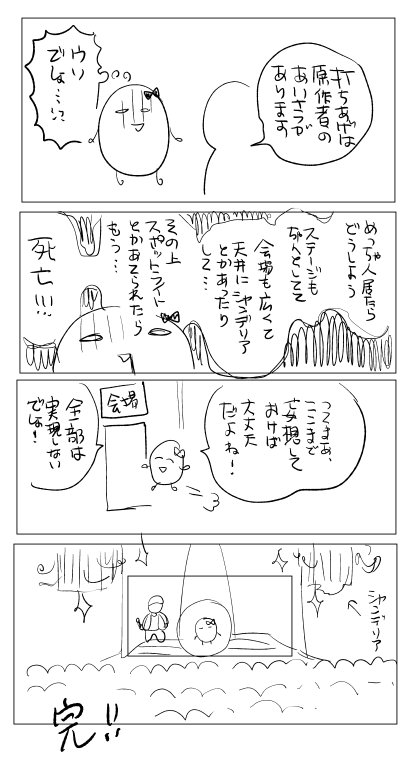 打ちあげは
原作者の
あいさつが
あります
ウソ
でしょ…!?
めっちゃ人居たら
どうしよう
ステージも
ちゃんとしてて
会場も広くて
天井にシャンデリア
とかあったり
して…
その上
スポットライト
とかあてられたら
もう…
死亡!!!
ってまぁ、
ここまで
妄想して
おけば
大丈夫
だよね!
会場
全部は
実現しない
でしょ!
シャンデリア
完!!